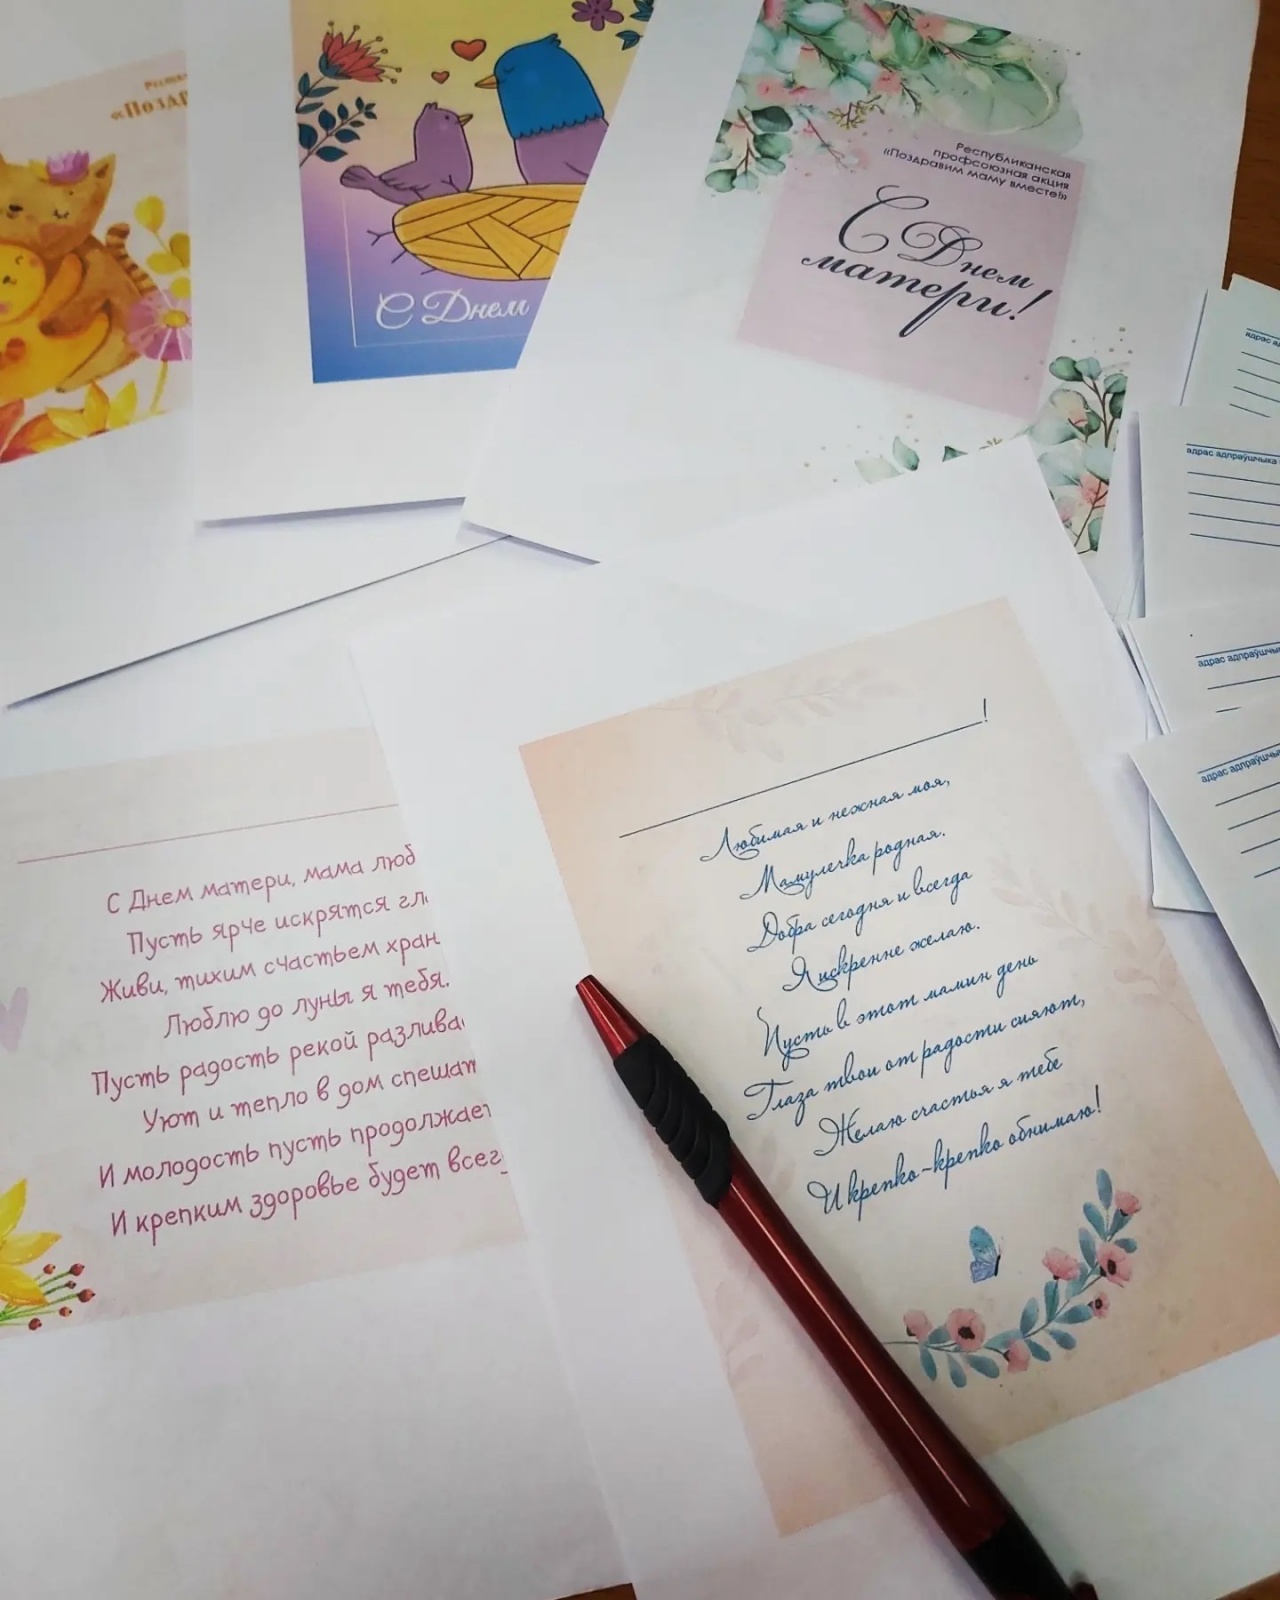 «Позд
С Днем
Республиканская
профсоюзная акция
«Поздравим маму вместе!»
С Днем
матери!
адрас
адрас адпраўшчыка
адрас адпраўшчы
адрас адпраўшчы
С Днем матери, мама люб
Пусть ярче искрятся гл
Живи, тихим счастьем хран
Люблю до луны я тебя.
Пусть радость рекой разлива
Уют и тепло в дом спешат
И молодость пусть продолжает
И крепким здоровье будет всег
!
Любимая и нежная моя,
Мамулечка родная.
Добра сегодня и всегда
Я искренне желаю.
Пусть в этот мамин день
Глаза твои от радости сияют,
Желаю счастья я тебе
И крепко-крепко обнимаю!